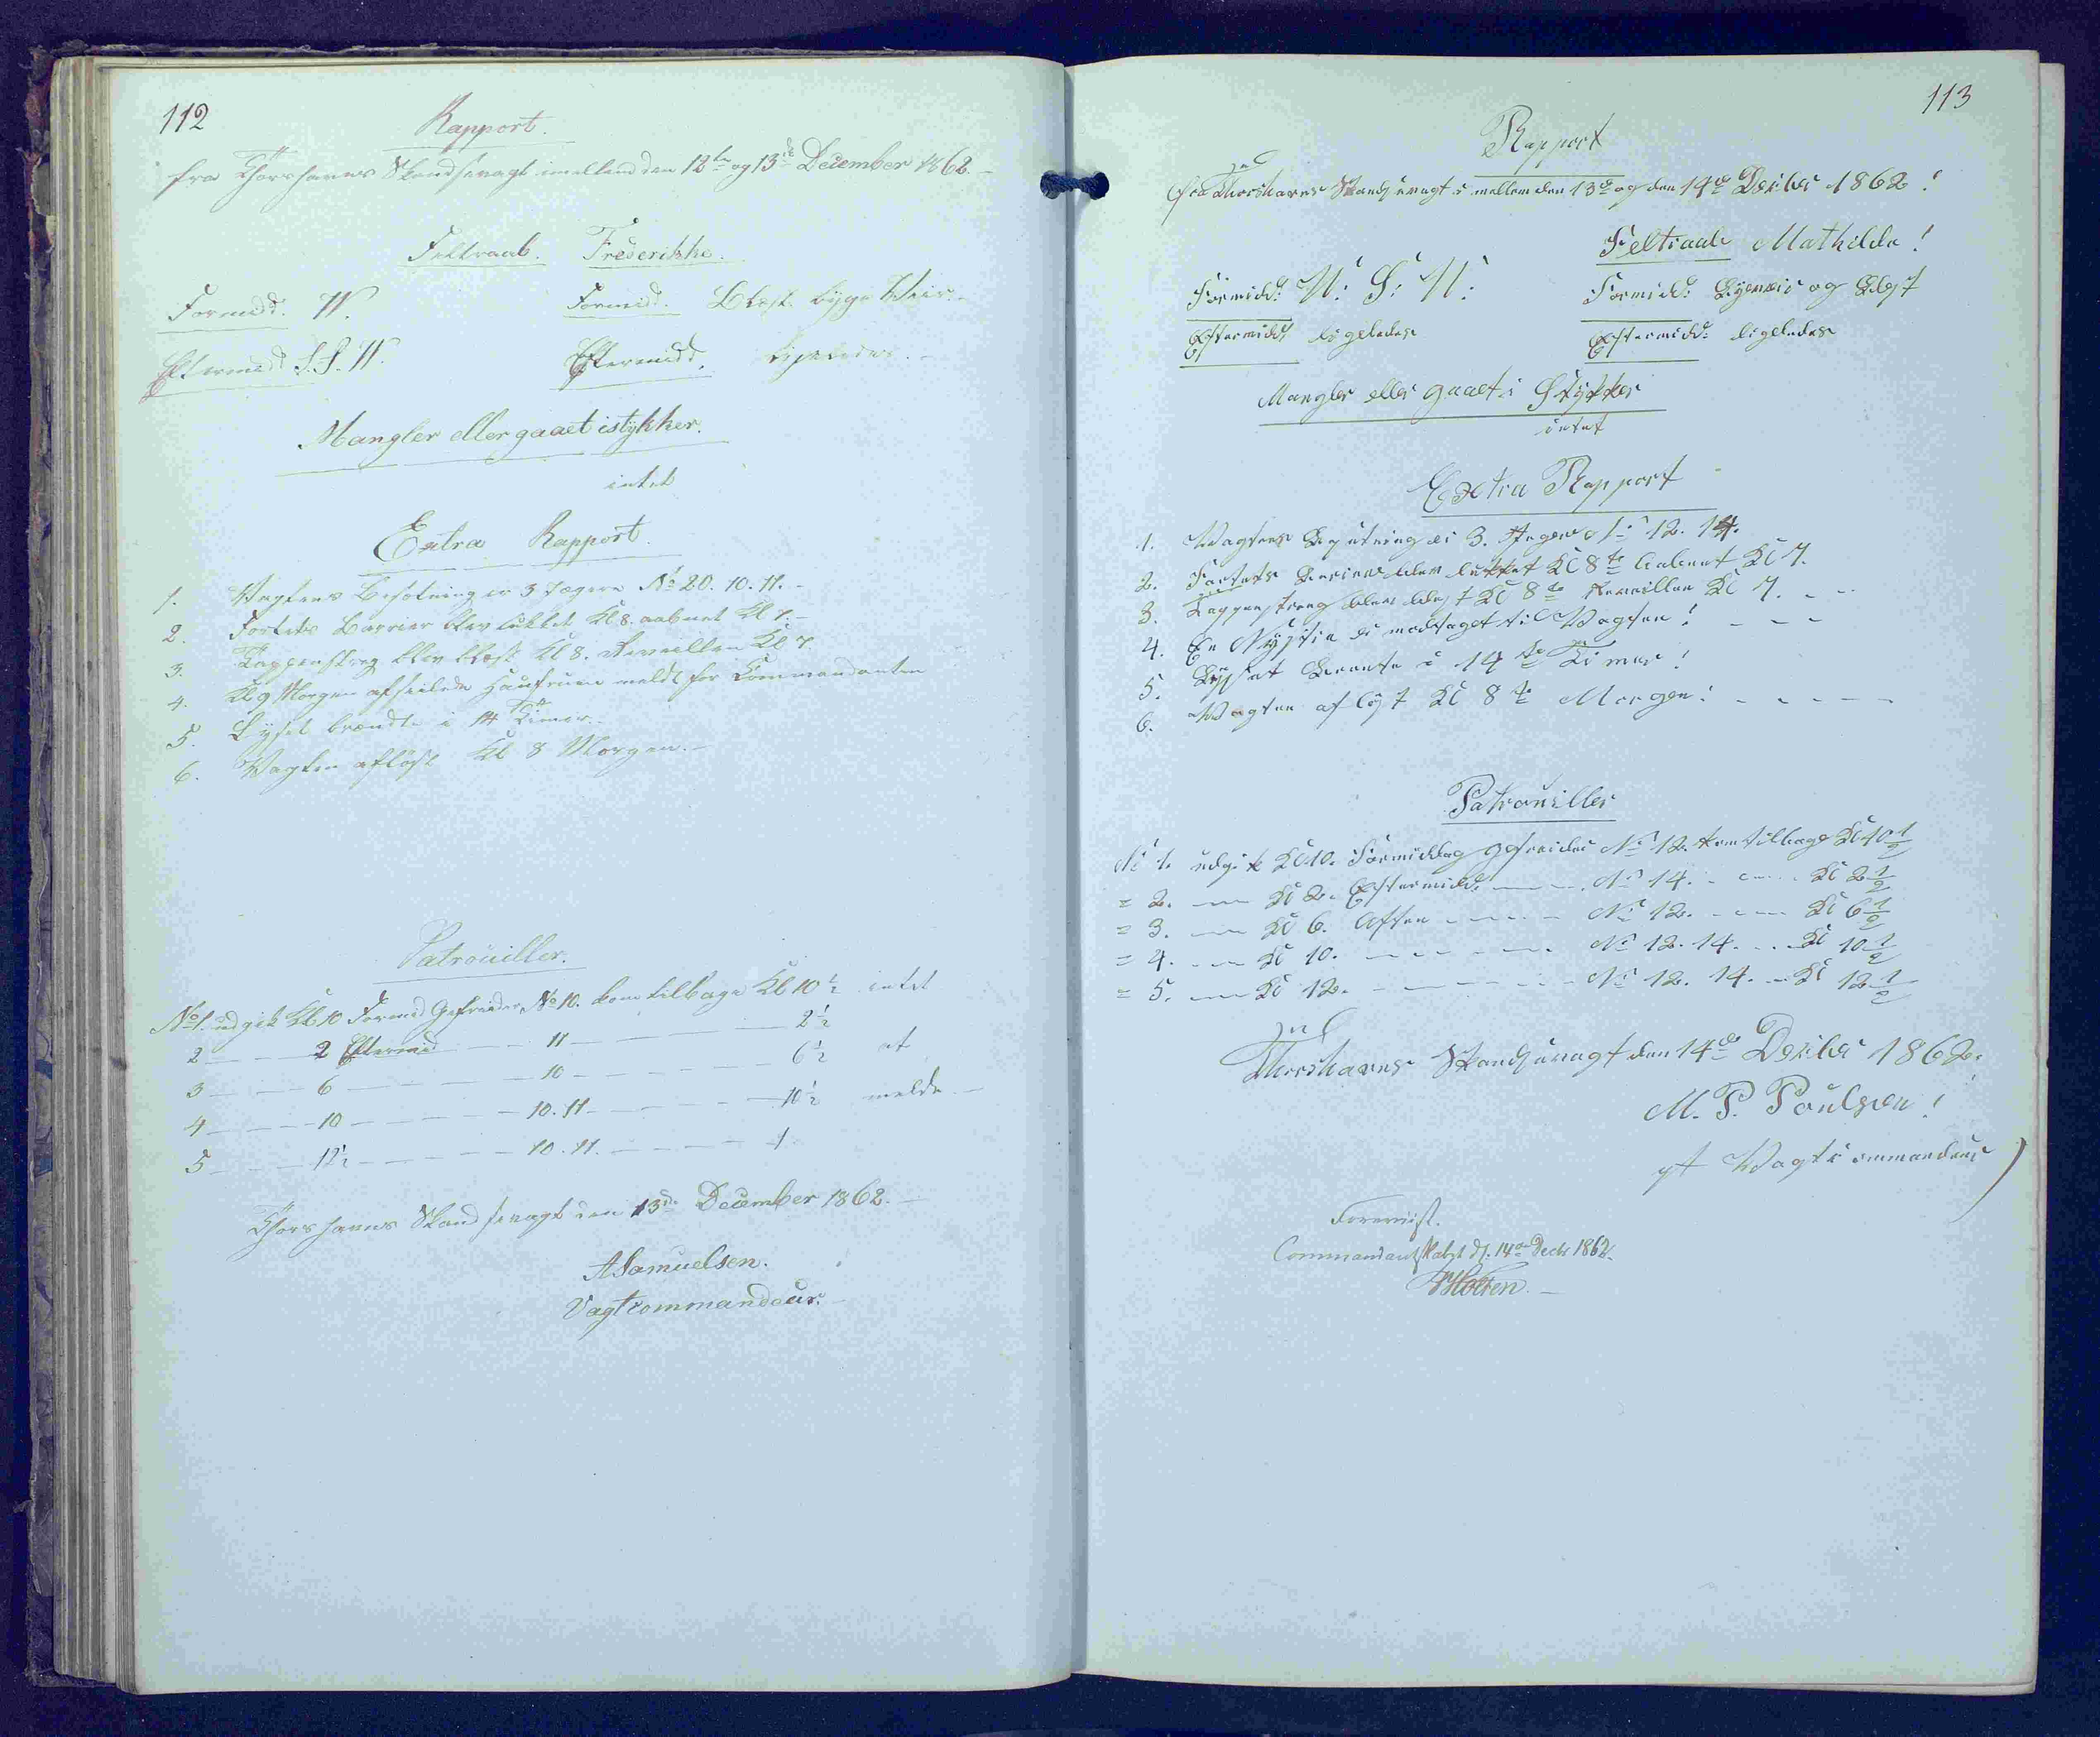 112
Rapport.
fra Thorshavns Skandsevagt imellem den 12te og 13de December 1862.
Feltraab. Frederikke.
Formidd. W. Formidd. Blæst Byge Veir.
Eftermidd S.S.W. Eftermidd. ligeledes.
Mangler eller gaaet istykker.
intet
Extra Rapport.
1. Vagtens Besætning er 3 Jægere No 20. 10. 11.
2. Fortets Barrier blev lukket Kl 8. aabnet Kl 7.
3. Tappenstreg blev blæst Kl 8. Reveillen Kl 7.
4. Kl 9 Morgen afseilede meldt for Commandanten
5. Lyset brændte i 14 Timer.
6. Vagten afløst Kl 8 Morgen.
Patrouiller.
No 1. udgik Kl 10 Formid Gefreider No 10. kom tilbage Kl 10½ intet
2 — — 2 Eftermid — — 11 — — — 2½
3 — — 6 — — — 10 — — — 6½ at
4 — — 10 — — — 10. 11 — — — 10½ melde
5 — — 12½ — — — 10. 11. — — — 1
Thorshavns Skandsevagt den 13de December 1862.
A Samuelsen.
Vagtcommandeur.
113
Rapport
fra Thorshavns Skandsevagt i mellem den 13de og den 14de Decbr 1862!
Feltraab Mathilde!
Formidd: W: S: W: Formidd: Bygeveir og Blæst
Eftermidd: ligeledes Eftermidd: ligeledes
Mangler eller gaaet i Stykker
intet
Extra Rapport
1. Vagtens Besætning er 3. Jægere No 12. 14.
2. Fortets Barrier blev lukket Kl 8te Aabnet Kl 7.
3. Tappenstreg blev blæst Kl 8te Reveillen Kl 7.
4. En er modtaget til Vagten!
5. Lyset Brente i 14te Timer!
6. Vagten afløst Kl 8te Morgen!
Patrouiller
No 1. udgik Kl 10. Formiddag Gefreider No 12. kom tilbage Kl 10½
= 2. — Kl 2. Eftermidd. — No 14. — Kl 2½
= 3. — Kl 6. Aften — No 12. — Kl 6½
= 4. — Kl 10. — No 12. 14. — Kl 10½
= 5. — Kl 12. — No 12. 14. — Kl 12½
Thorshavns Skandsevagt den 14de Decbr 1862.
M. P. Poulsen!
Vagtcommandeur
Foreviist.
Commandantskabet d. 14de Decbr 1862.
HHolten.